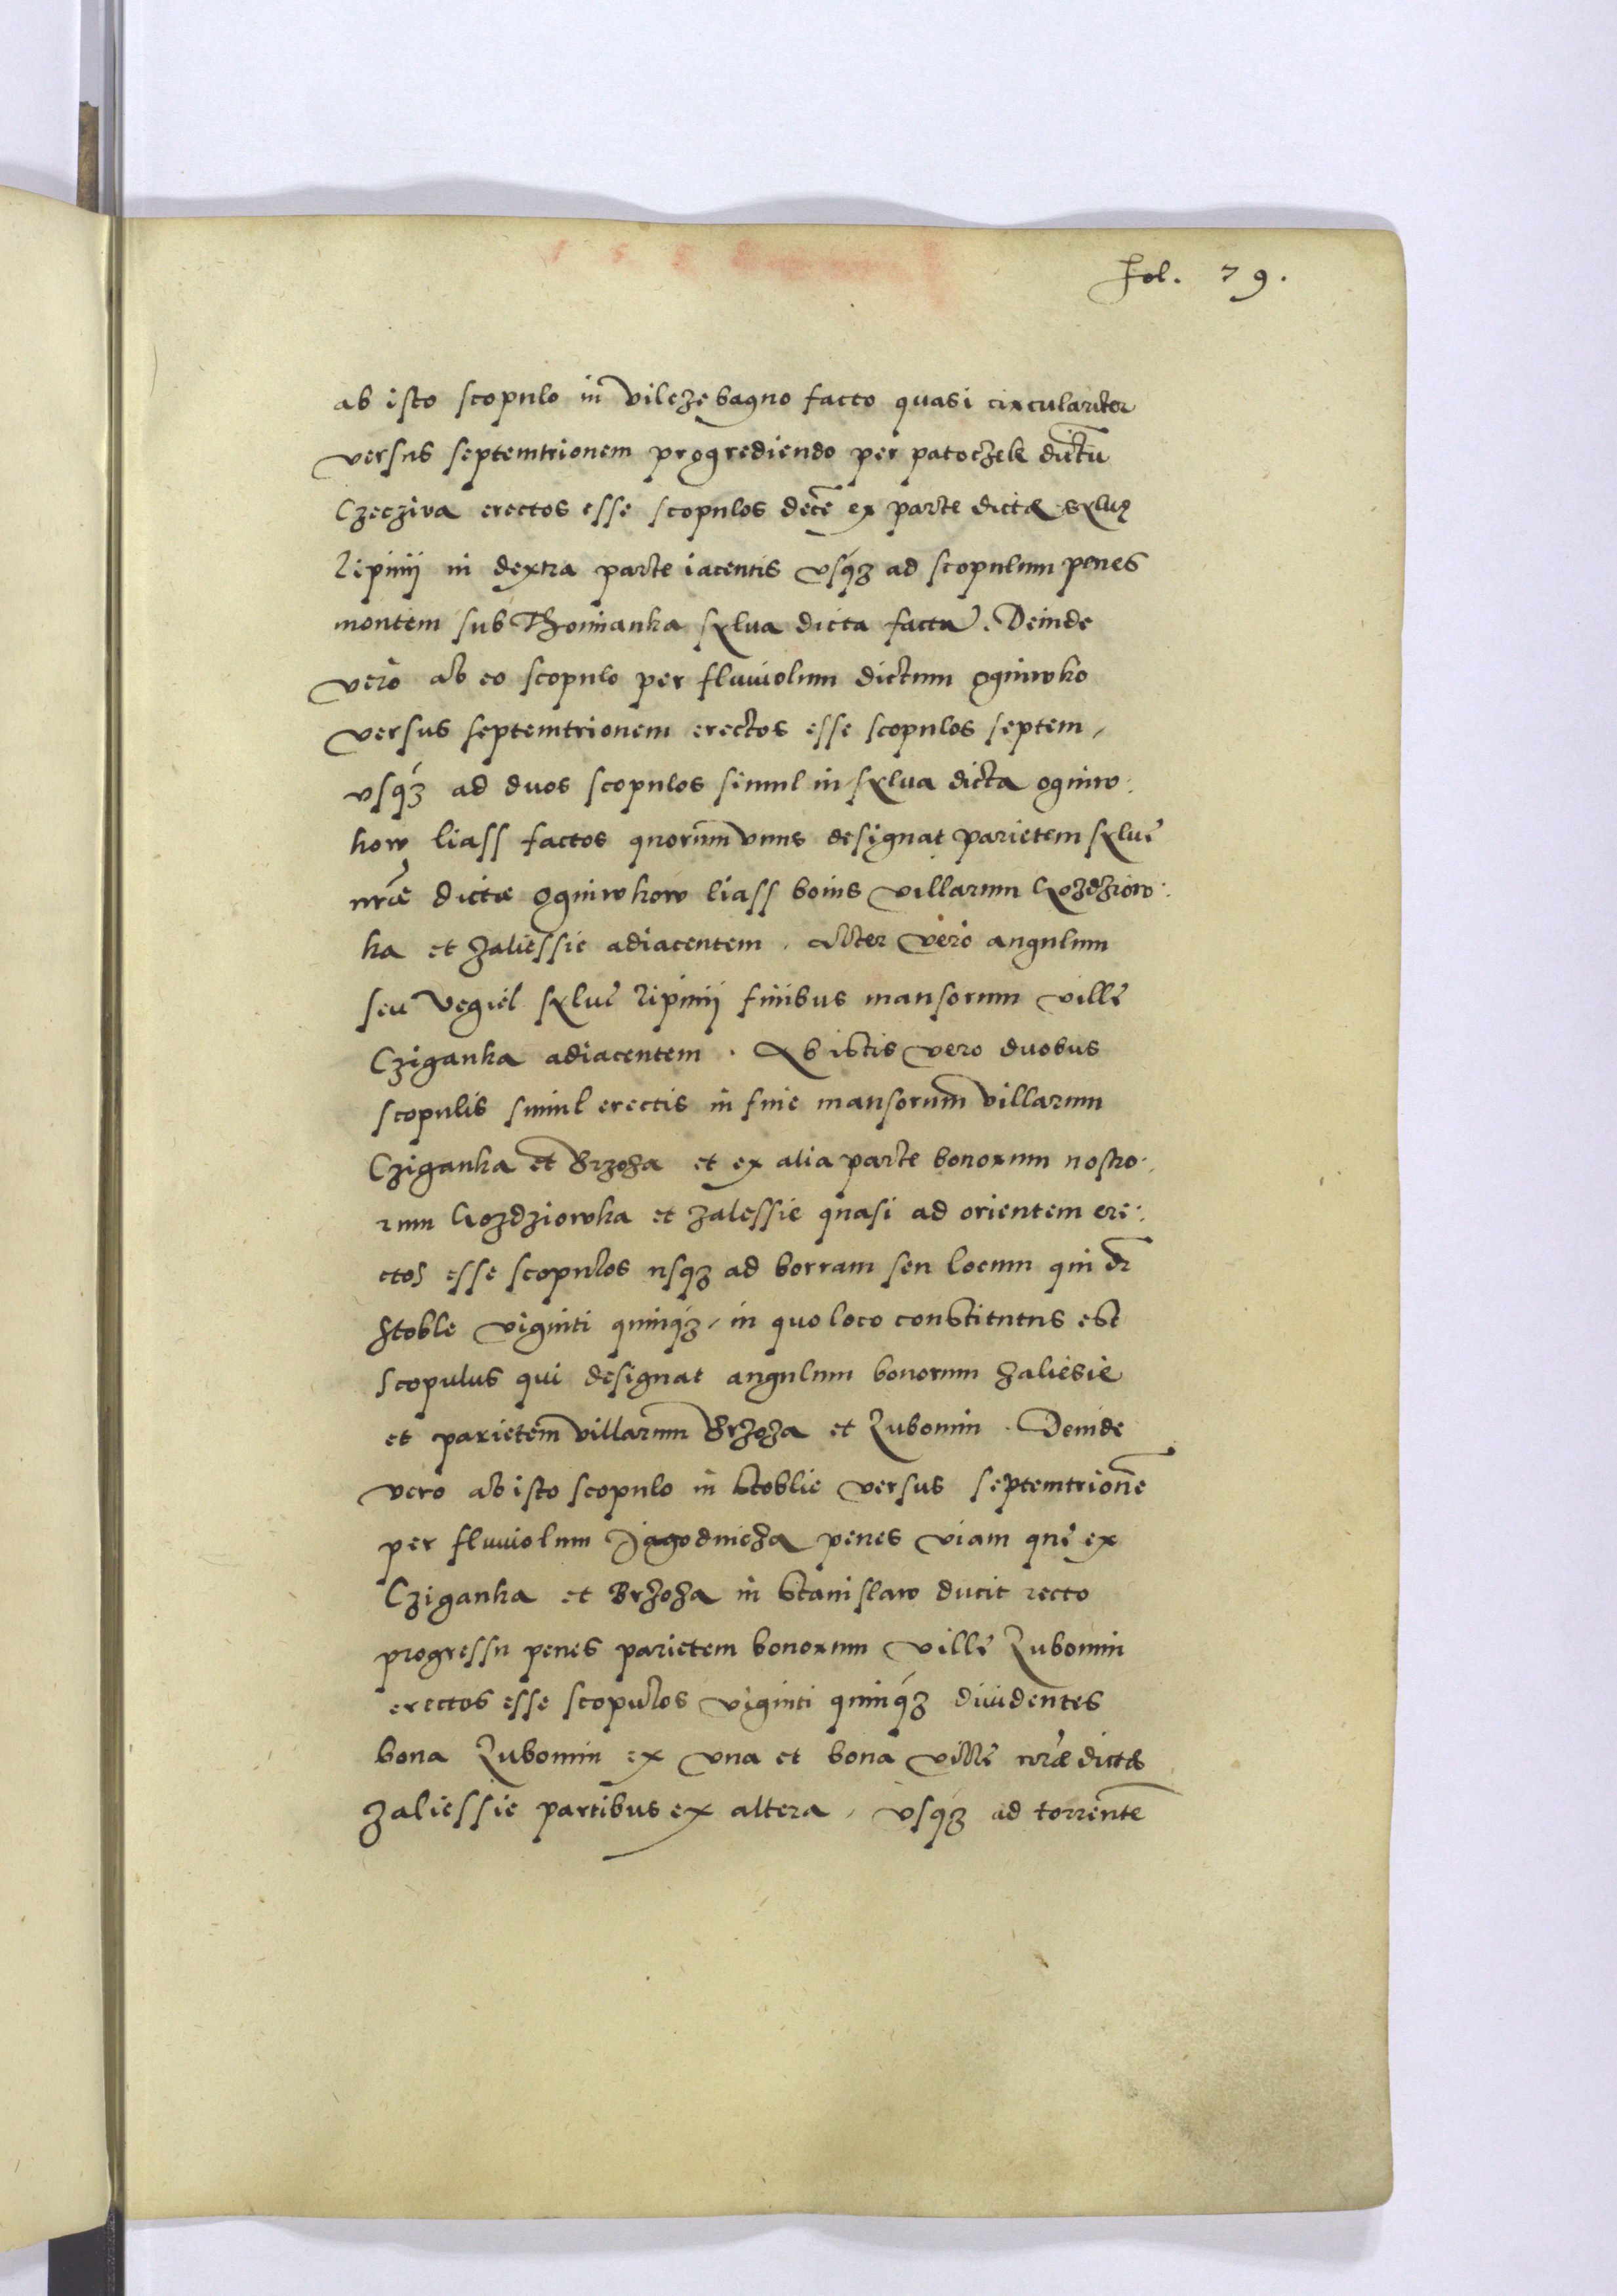 Fol. 79.
ab isto scopulo in vilczębagno facto quasi circulariter
versus septemtrionem progrediendo per patoczek dictũ
Czecziva erectos esse scopulos decẽ ex parte dictæ sylvę
Lipinij in dextra parte iacentis vsq́ꝫ ad scopulum penes
montem sub Thomanka sylva dicta factũ. Deinde
vero ab eo scopulo per fluviolum dictum ogniwko
versus septemtrionem erectos esse scopulos septem,
vsq́ꝫ ad duos scopulos simul in sylva dicta ogniw:
kow liass factos quorum vnus designat parietem sylvę
nr̃æ dictæ ogniwkow liass bonis villarum Gozdziow:
ka et Zaliessie adiacentem. Alter vero angulum
seu Vegiel sylvę Lipinij finibus mansorum villę
Cziganka adiacentem. Ab istis vero duobus
scopulis simul erectis in fine mansorum villarum
Cziganka et Brzoza et ex alia parte bonorum nostro:
rum Gozdziowka et Zalessie quasi ad orientem ere:
ctos esse scopulos usq́ꝫ ad borram seu locum qui dr̃
Stoble viginti quinq́ꝫ, in quo loco constitutus est
scopulus qui designat angulum bonorum Zaliesie
et parietem villarum Brzoza et Lubomin. Deinde
vero ab isto scopulo in Stoblie versus septemtrionẽ
per fluviolum Jagodnicza penes viam quę ex
Cziganka et Brzoza in Stanislaw ducit recto
progressu penes parietem bonorum villę Lubomin
erectos esse scopulos viginti quinq́ꝫ dividentes
bona Lubomin ex vna et bona villę nr̃æ dictæ
Zaliessie partibus ex altera, vsq́ꝫ ad torrentẽ